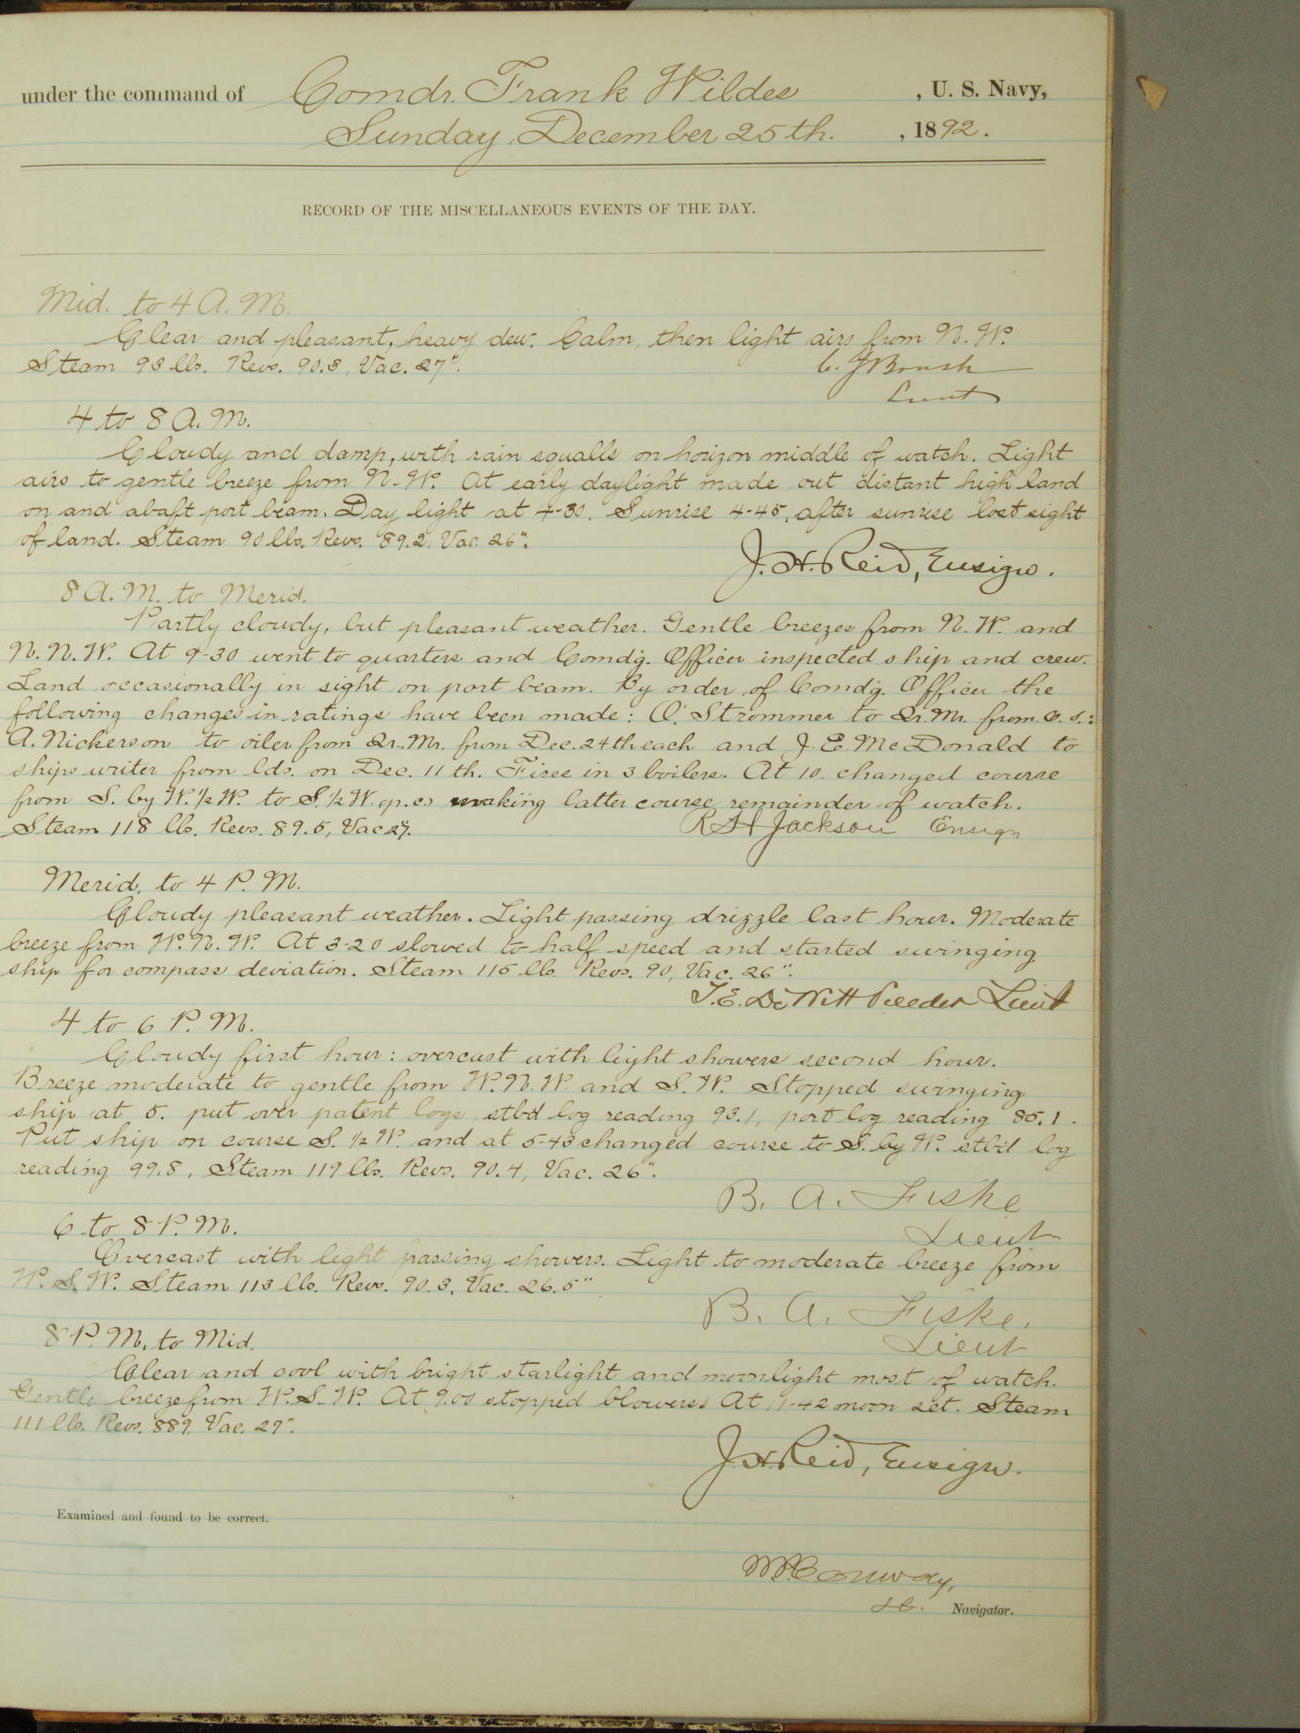 under the command of Comdr. Frank Wildes, U. S. Navy,
Sunday, December 25th. , 1892.
RECORD OF THE MISCELLANEOUS EVENTS OF THE DAY.
Mid. to 4 A. M.
Clear and pleasant, heavy dew. Calm, then light airs from N. W.
Steam 93 lbs. Revs. 90.3, Vac. 27".
C. J. Boush
Lieut
4 to 8 A. M.
Cloudy and damp, with rain squalls on horizon middle of watch. Light
airs to gentle breeze from N.-W. At early daylight made out distant high land
on and abaft port beam. Day light at 4-30. Sunrise 4-45, after sunrise lost sight
of land. Steam 90 lbs. Revs. 89.2. Vac. 26".
J. H. Reid, Ensign.
8 A. M. to Merid.
Partly cloudy, but pleasant weather. Gentle breezes from N. W. and
N. N. W. At 9-30 went to quarters and Comdg. Officer inspected ship and crew.
Land occasionally in sight on port beam. By order of Comdg. Officer the
following changes in ratings have been made: O. Strommer to Qr. Mr. from O. S.:
A. Nickerson to oiler from Qr. Mr. from Dec. 24th each and J. E. McDonald to
ships writer from lds. on Dec. 11th. Fires in 3 boilers. At 10. changed course
from S. by W. ½ W. to S. ½ W. p. c. making latter course remainder of watch.
Steam 118 lb. Revs. 89.5, Vac. 27.
R H Jackson Ensign
Merid. to 4 P. M.
Cloudy pleasant weather. Light passing drizzle last hour. Moderate
breeze from W. N. W. At 3-20 slowed to half speed and started swinging
ship for compass deviation. Steam 115 lb. Revs. 90, Vac. 26".
T. E. DeWitt Veeder Lieut
4 to 6 P. M.
Cloudy first hour: overcast with light showers second hour.
Breeze moderate to gentle from W. N. W. and S. W. Stopped swinging
ship at 5. put over patent logs, stbd log reading 93.1, port log reading 85.1.
Put ship on course S. ½ W. and at 5-43 changed course to S. by W. stbd log
reading 99.8, Steam 119 lbs. Revs. 90.4, Vac. 26".
B. A. Fiske
Lieut
6 to 8 P. M.
Overcast with light passing showers. Light to moderate breeze from
W. S. W. Steam 113 lbs. Revs. 90.3, Vac. 26.5"
B. A. Fiske.
Lieut
8 P. M. to Mid.
Clear and cool with bright starlight and moonlight most of watch.
Gentle breeze from W. S. W. At 9.00 stopped blowers At 11-42 moon set. Steam
111 lbs. Revs. 889. Vac. 27".
J. H. Reid, Ensign.
Examined and found to be correct.
W. P. Conway,
Navigator.